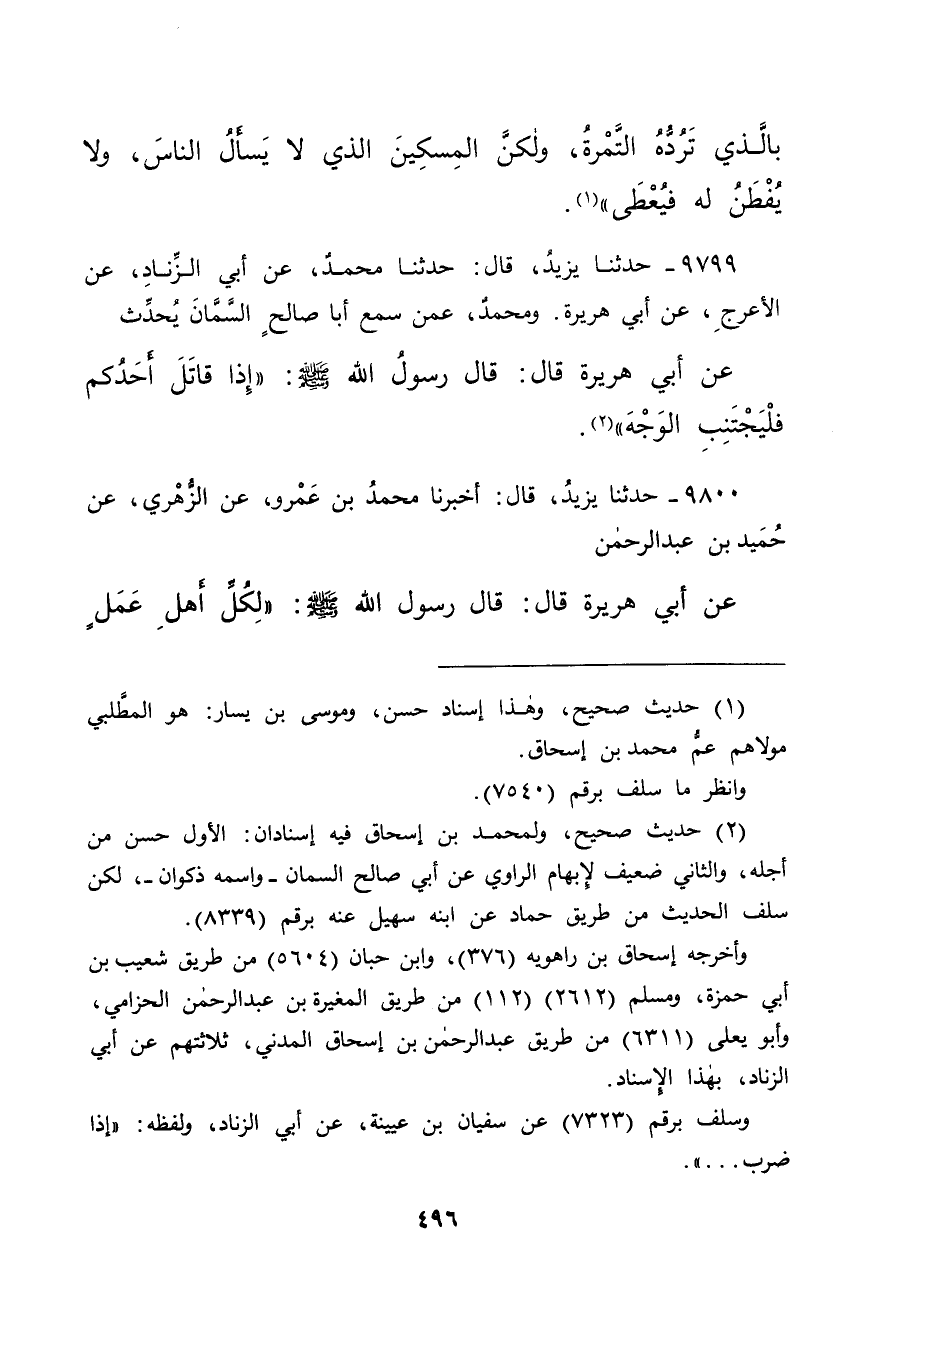 بالَّـذي تَرُدُّهُ التَّمْرةُ، ولٰكنَّ المِسكِينَ الذي لا يَسأَلُ الناسَ، ولا
يُفْطَنُ له فيُعْطَى»(١).
٩٧٩٩ـ حدثنـا يزيدُ، قال: حدثنـا محمـدٌ، عن أبي الـزِّنـادِ، عن
الأعرجِ، عن أبي هريرة. ومحمدٌ، عمن سمع أبا صالحٍ السَّمَّانَ يُحدِّث
عن أبي هريرة قال: قال رسولُ الله ﷺ: «إِذا قاتَلَ أَحَدُكم
فلْيَجْتَنِبِ الوَجْهَ»(٢).
٩٨٠٠ـ حدثنا يزيدُ، قال: أخبرنا محمدُ بن عَمْرو، عن الزُّهْري، عن
حُمَيد بن عبدالرحمٰن
عن أبي هريرة قال: قال رسول الله ﷺ: «لِكُلِّ أَهلِ عَمَلٍ
(١) حديث صحيح، وهٰـذا إسناد حسن، وموسى بن يسار: هو المطَّلبي
مولاهم عمُّ محمد بن إسحاق.
وانظر ما سلف برقم (٧٥٤٠).
(٢) حديث صحيح، ولمحمـد بن إسحاق فيه إسنادان: الأول حسن من
أجله، والثاني ضعيف لإبهام الراوي عن أبي صالح السمان ـ واسمه ذكوان ـ، لكن
سلف الحديث من طريق حماد عن ابنه سهيل عنه برقم (٨٣٣٩).
وأخرجه إسحاق بن راهويه (٣٧٦)، وابن حبان (٥٦٠٤) من طريق شعيب بن
أبي حمزة، ومسلم (٢٦١٢) (١١٢) من طريق المغيرة بن عبدالرحمٰن الحزامي،
وأبو يعلى (٦٣١١) من طريق عبدالرحمٰن بن إسحاق المدني، ثلاثتهم عن أبي
الزناد، بهٰذا الإسناد.
وسلف برقم (٧٣٢٣) عن سفيان بن عيينة، عن أبي الزناد، ولفظه: «إذا
ضرب...».
٤٩٦